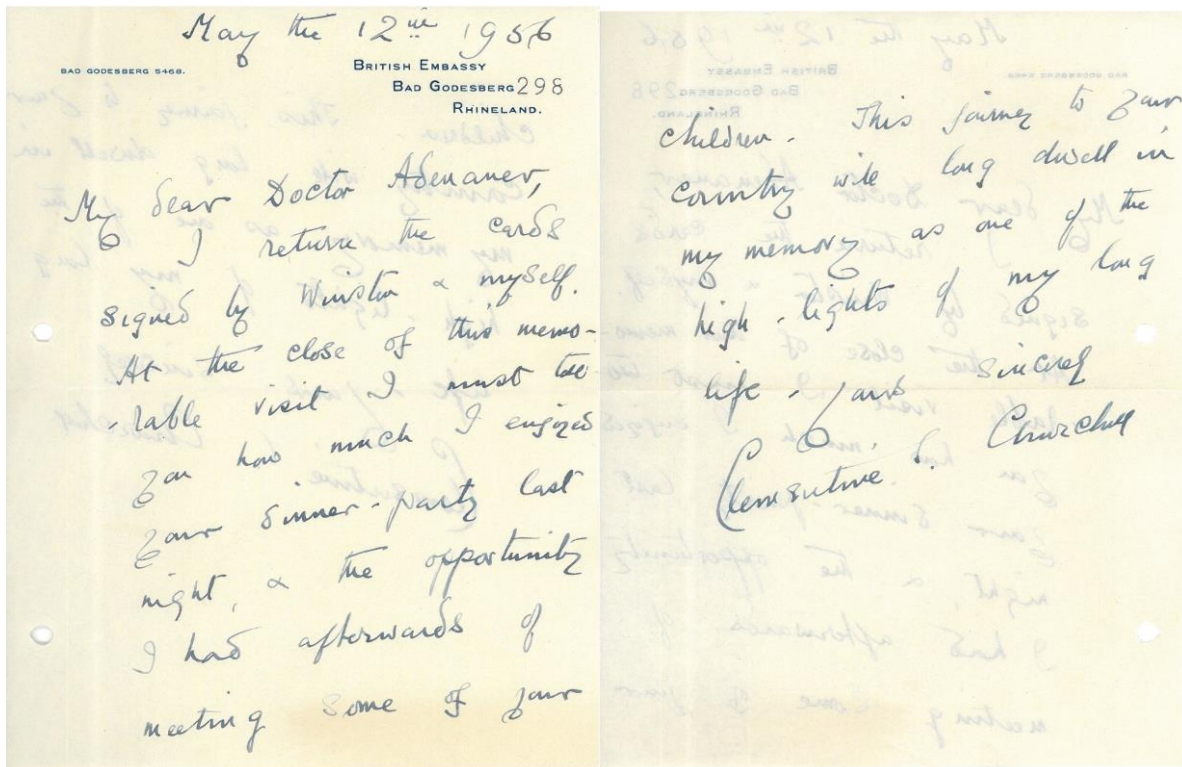 May the 12th 1956
BAD GODESBERG 5468.
BRITISH EMBASSY
BAD GODESBERG 298
RHINELAND.
My dear Doctor Adenauer,
I return the cards
signed by Winston & myself.
At the close of this memo-
-rable visit I must tell
you how much I enjoyed
your dinner-party last
night, & the opportunity
I had afterwards of
meeting some of your
children. This journey to your
country will long dwell in
my memory as one of the
high-lights of my long
life. Yours sincerely
Clementine S. Churchill